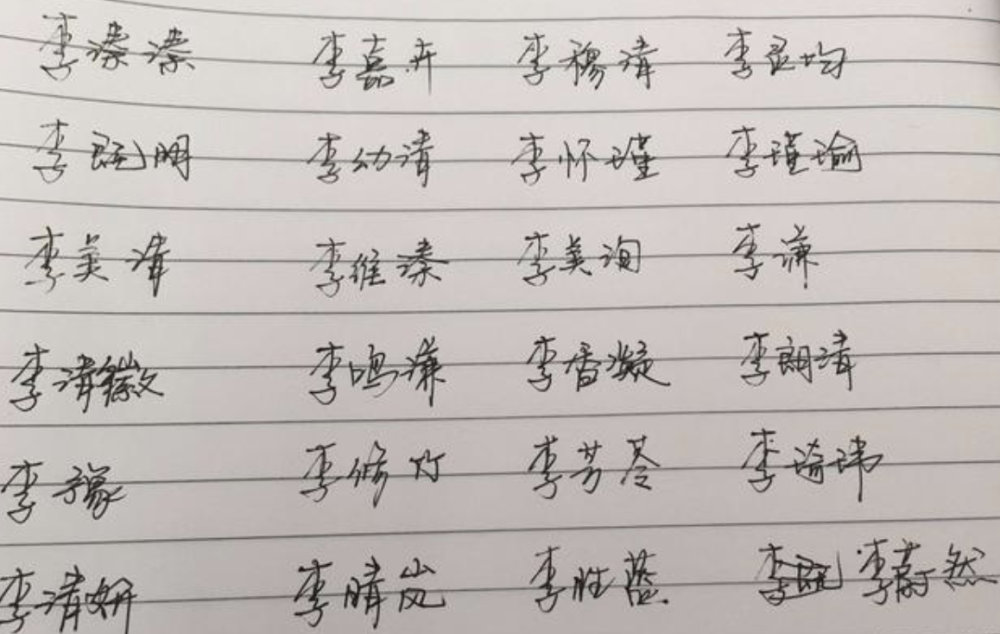 李溱溱 李嘉卉 李穆清 李灵均
李既明 李幼清 李怀瑾 李瑾瑜
李美清 李维溱 李美洵 李濂
李清徽 李鸣濂 李香凝 李朗清
李豫 李修竹 李芳苓 李瑜玮
李清妍 李晴岚 李胜蓝 李蔚然